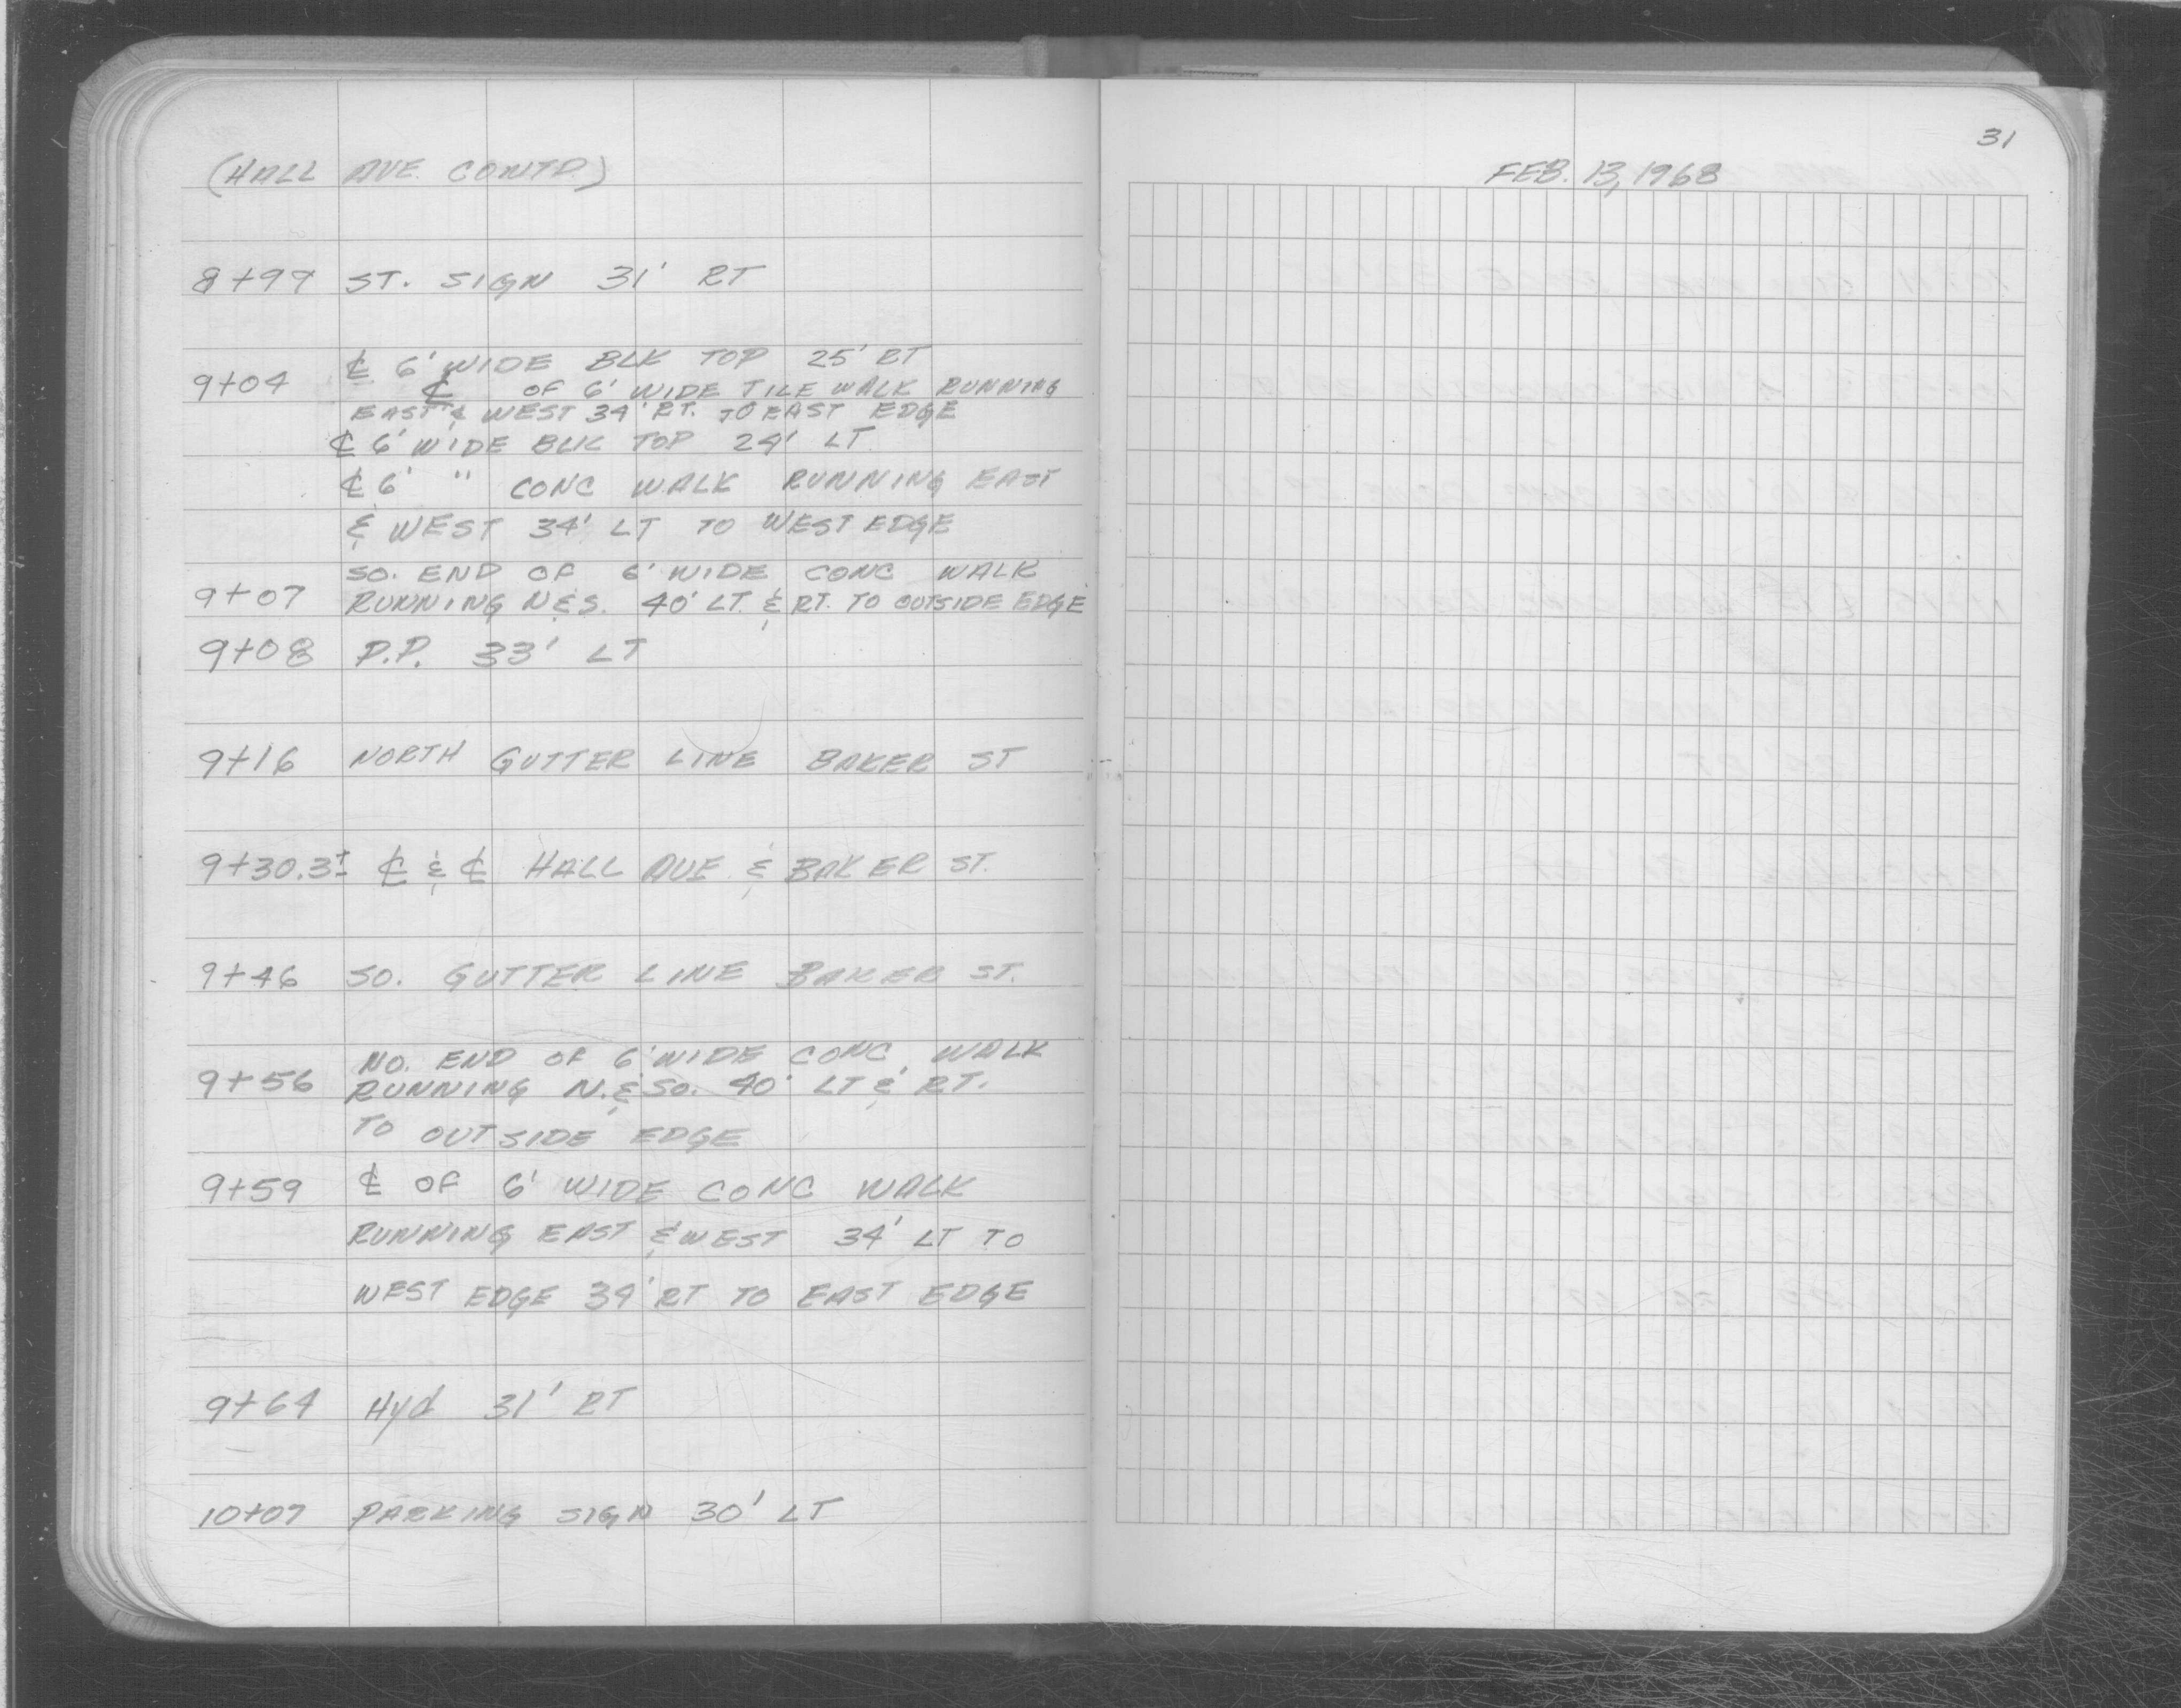 (HALL AVE. CONTD)
8+97 ST. SIGN 31' RT
℄ 6' WIDE BLK TOP 25' RT
9+04 ℄ OF 6' WIDE TILE WALK RUNNING
EAST & WEST 34' RT. TO EAST EDGE
℄ 6' WIDE BLK TOP 24' LT
℄ 6' " CONC WALK RUNNING EAST
& WEST 34' LT TO WEST EDGE
SO. END OF 6' WIDE CONC WALK
9+07 RUNNING N & S. 40' LT. & RT. TO OUTSIDE EDGE
9+08 P.P. 33' LT
9+16 NORTH GUTTER LINE BAKER ST
9+30.3± ℄ & ℄ HALL AVE & BAKER ST.
9+46 SO. GUTTER LINE BAKER ST.
NO. END OF 6' WIDE CONC WALK
9+56 RUNNING N. & SO. 40' LT & RT.
TO OUTSIDE EDGE
9+59 ℄ OF 6' WIDE CONC WALK
RUNNING EAST & WEST 34' LT TO
WEST EDGE 34' RT TO EAST EDGE
9+64 Hyd 31' RT
10+07 PARKING SIGN 30' LT
31
FEB. 13, 1968